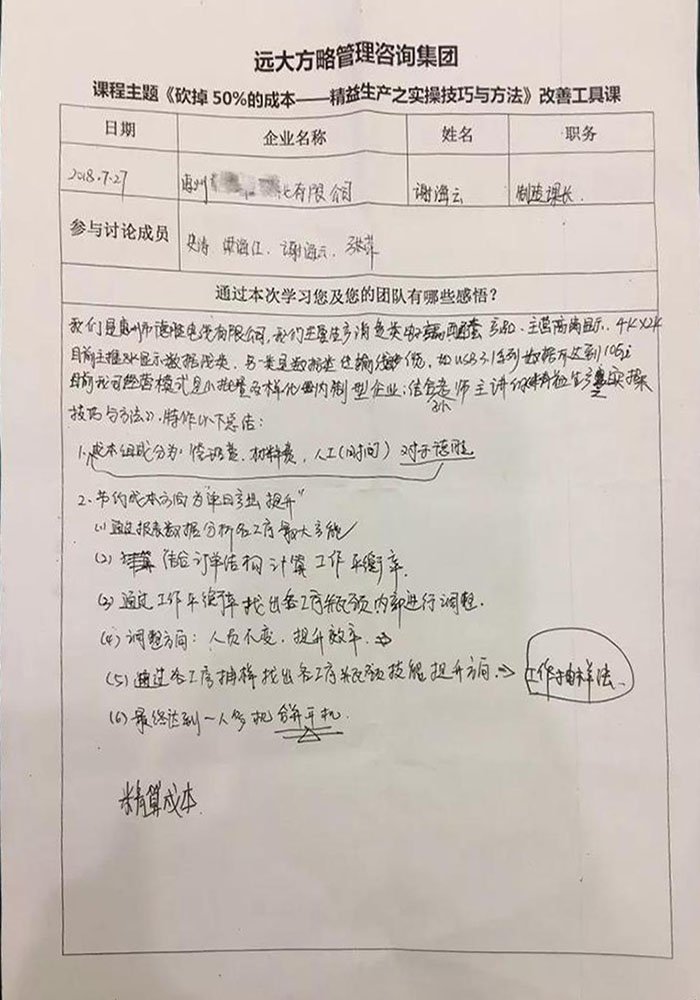 远大方略管理咨询集团
课程主题《砍掉 50%的成本——精益生产之实操技巧与方法》改善工具课
日期 企业名称 姓名 职务
2018.7.27 惠州 有限公司 谢海云 制造课长
参与讨论成员 谢海云、
通过本次学习您及您的团队有哪些感悟？
我们是惠州市德胜电线有限公司,我们主要生产消费类 主营高清显示、4K×2K
目前主推8K显示数据线类,另一类是数据类传输线缆,如USB3.1系列数据 达到10G
目前我司经营模式是小批量多样化 型企业,结合 老师主讲《精益生产之实操
技巧与方法》,特作以下总结:
1.成本组成分为:管理费、材料费、人工(时间) 对于德胜
2.节约成本方向为"单日产出提升"
(1)通过报表数据分析各工序最大产能
(2) 结合订单结构计算工作平衡率.
(3)通过工作平衡率找出各工序瓶颈内部进行调整.
(4)调整方向:人员不变,提升效率.⇒
(5)通过各工序抽样找出各工序瓶颈技能提升方向.⇒ 工作抽样法、
(6)最终达到一人多机,合并开机.
精算成本